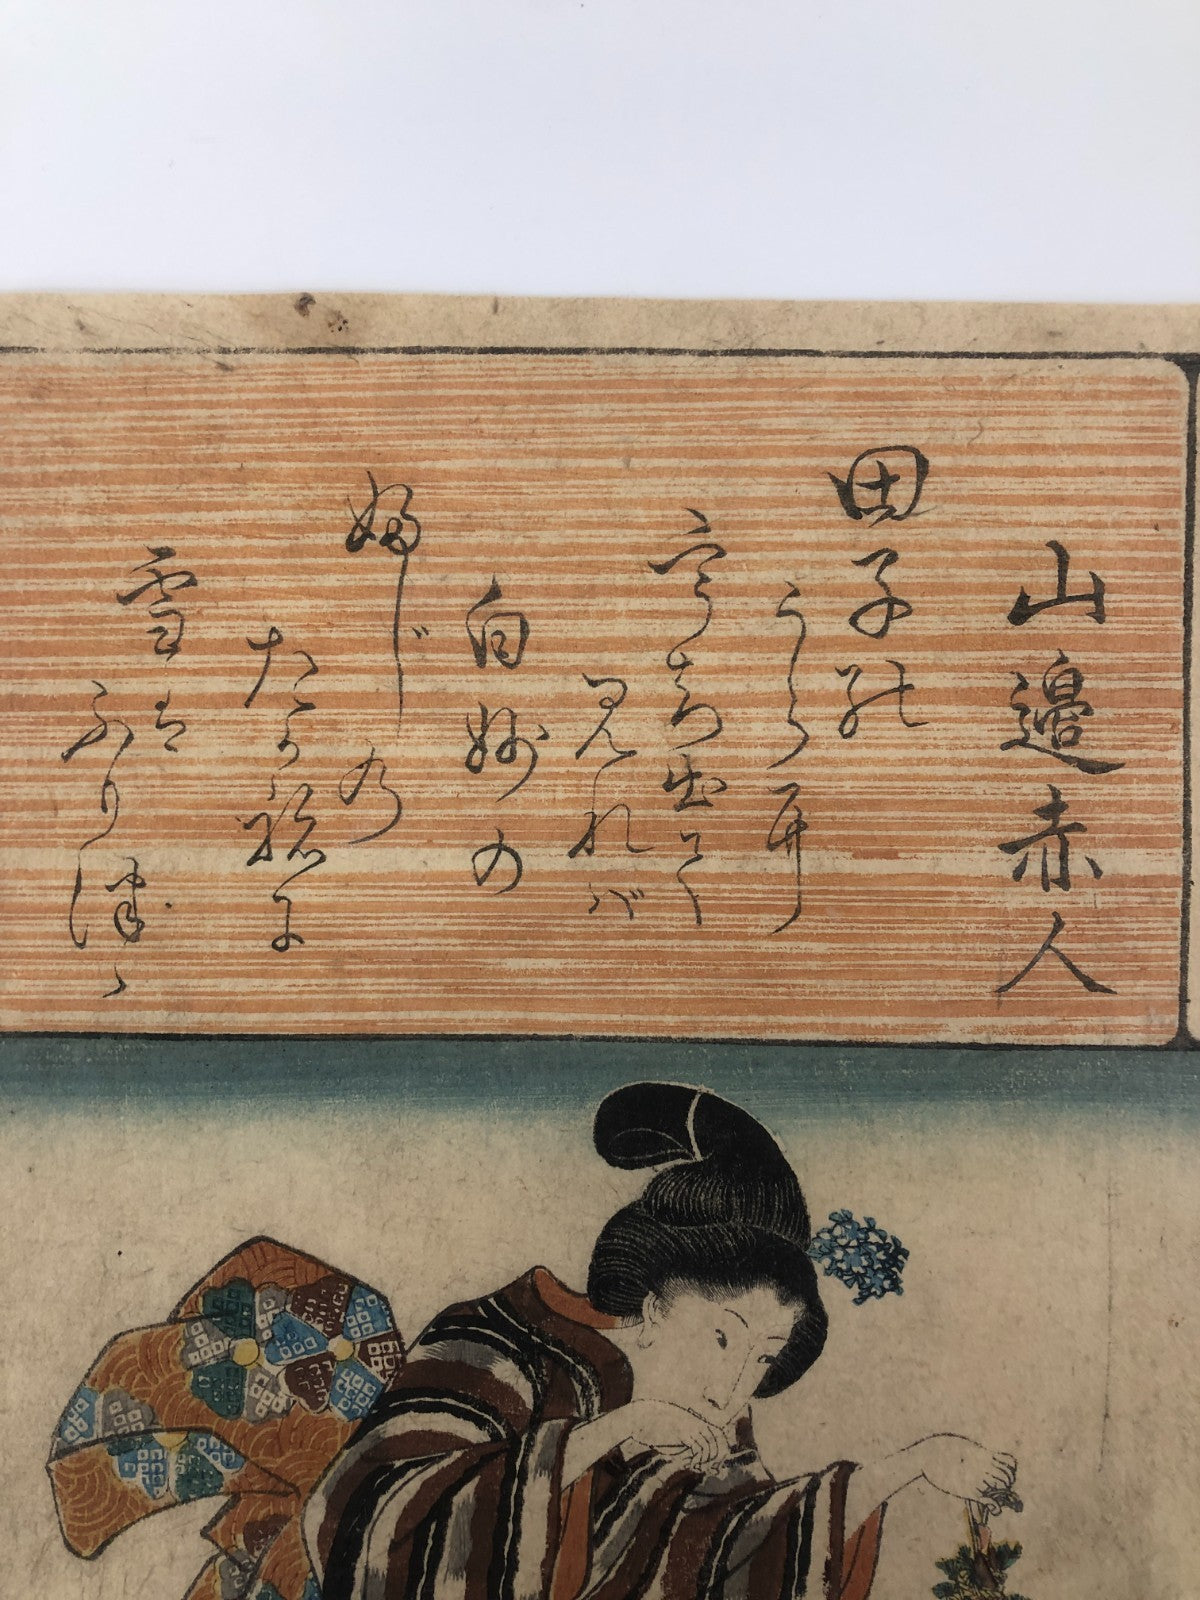 山邊赤人
田子の
うら耳
うち出て
見れば
白妙の
婦じの
たか祢に
雪は
ふりつゝ